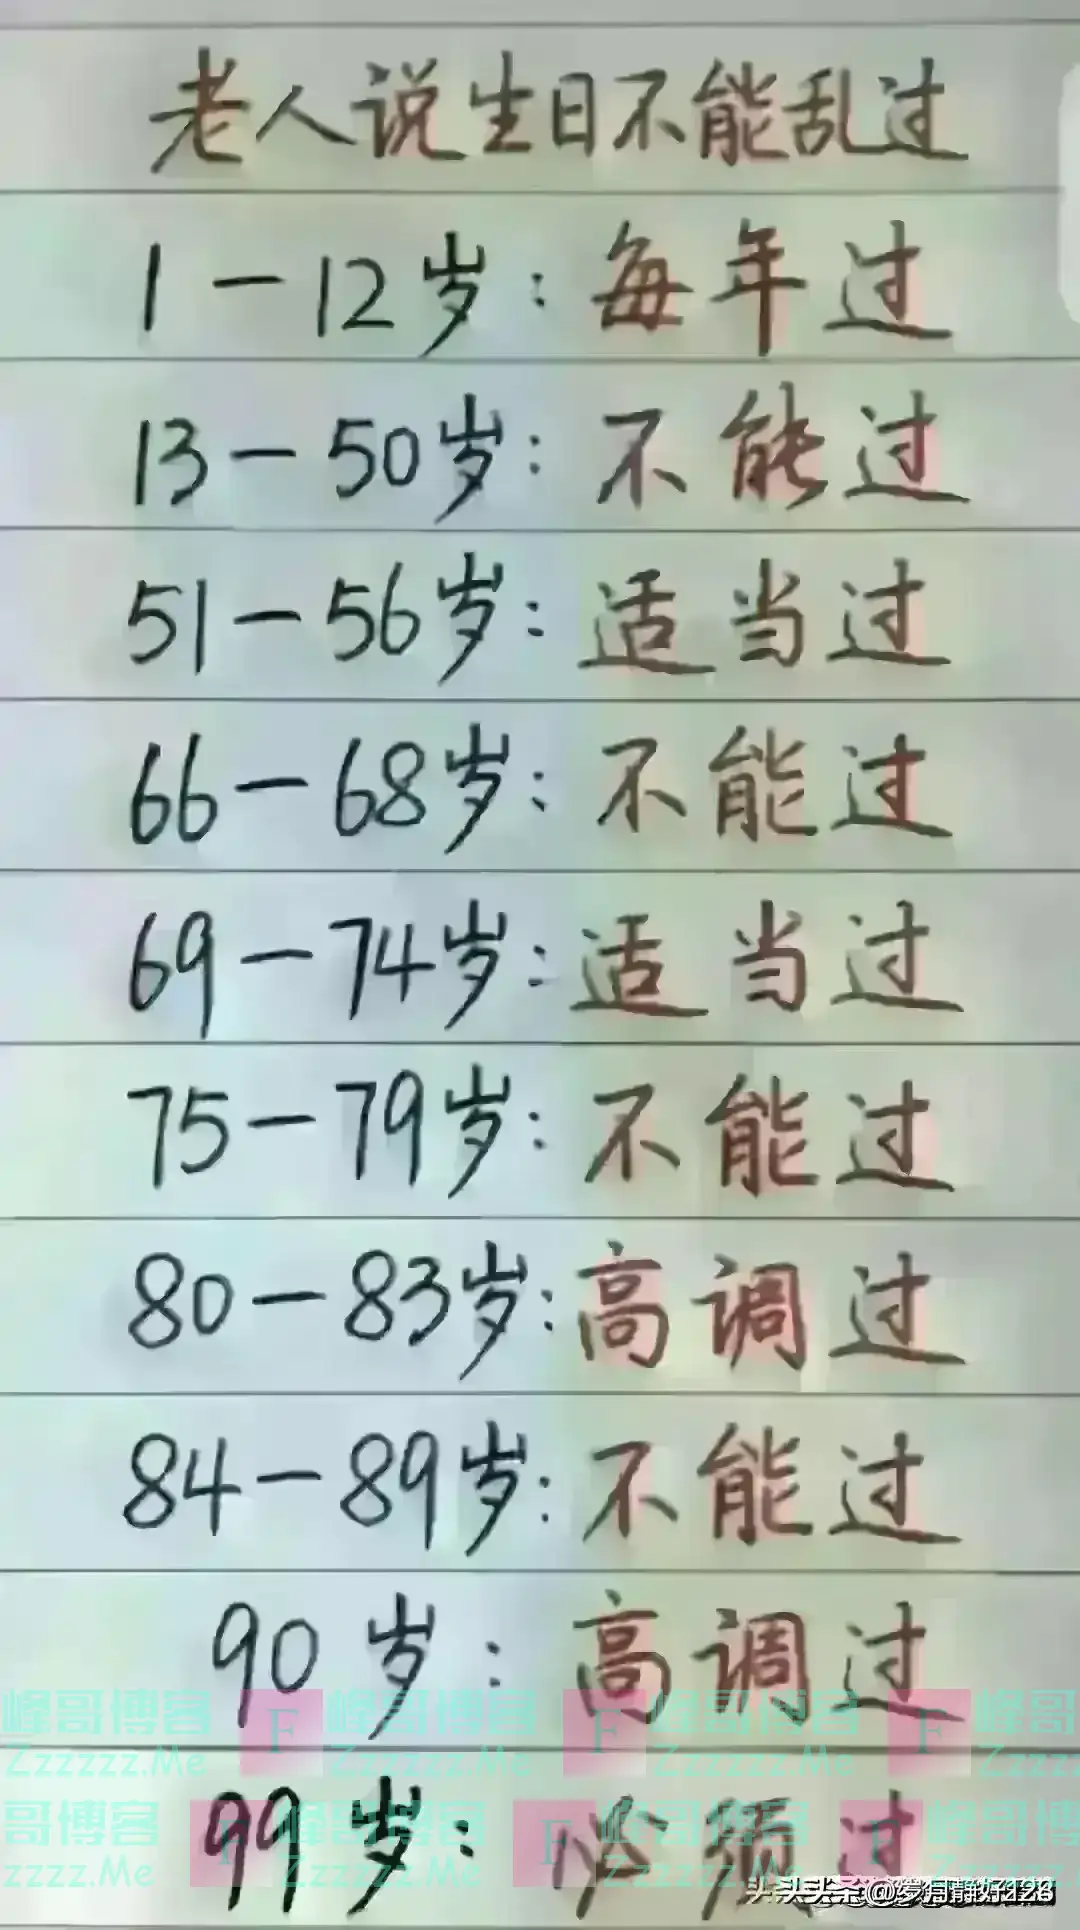 老人说生日不能乱过
1-12岁:每年过
13-50岁:不能过
51-56岁:适当过
66-68岁:不能过
69-74岁:适当过
75-79岁:不能过
80-83岁:高调过
84-89岁:不能过
90岁:高调过
峰哥博客 F 峰哥博客 F 峰哥博客 F 峰哥
Zzzzzz.Me Zzzzzz.Me Zzzzzz.Me Zzzzz
99岁:必须过
哥博客 F 峰哥博客 F 峰哥博客 F 峰哥博
zzzz.Me Zzzzzz.Me Zzzzzz.Me Zzzzzz
头条@岁月静好